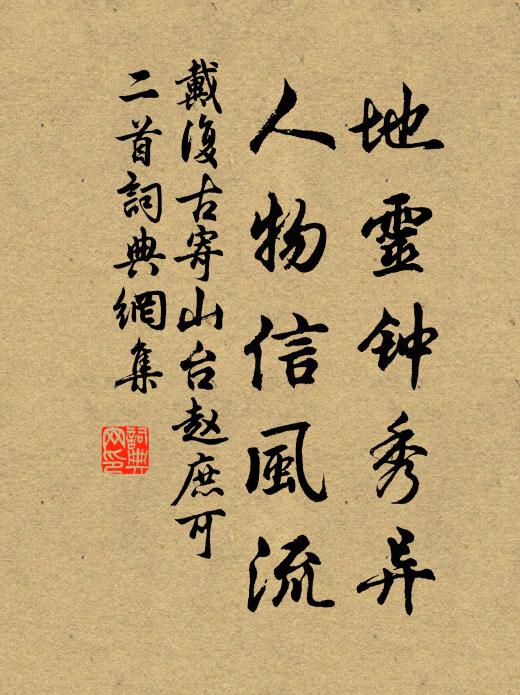 地靈钟秀异
人物信風流
戴復古寄山台赵庶可
二首詞典網集
詞典网印